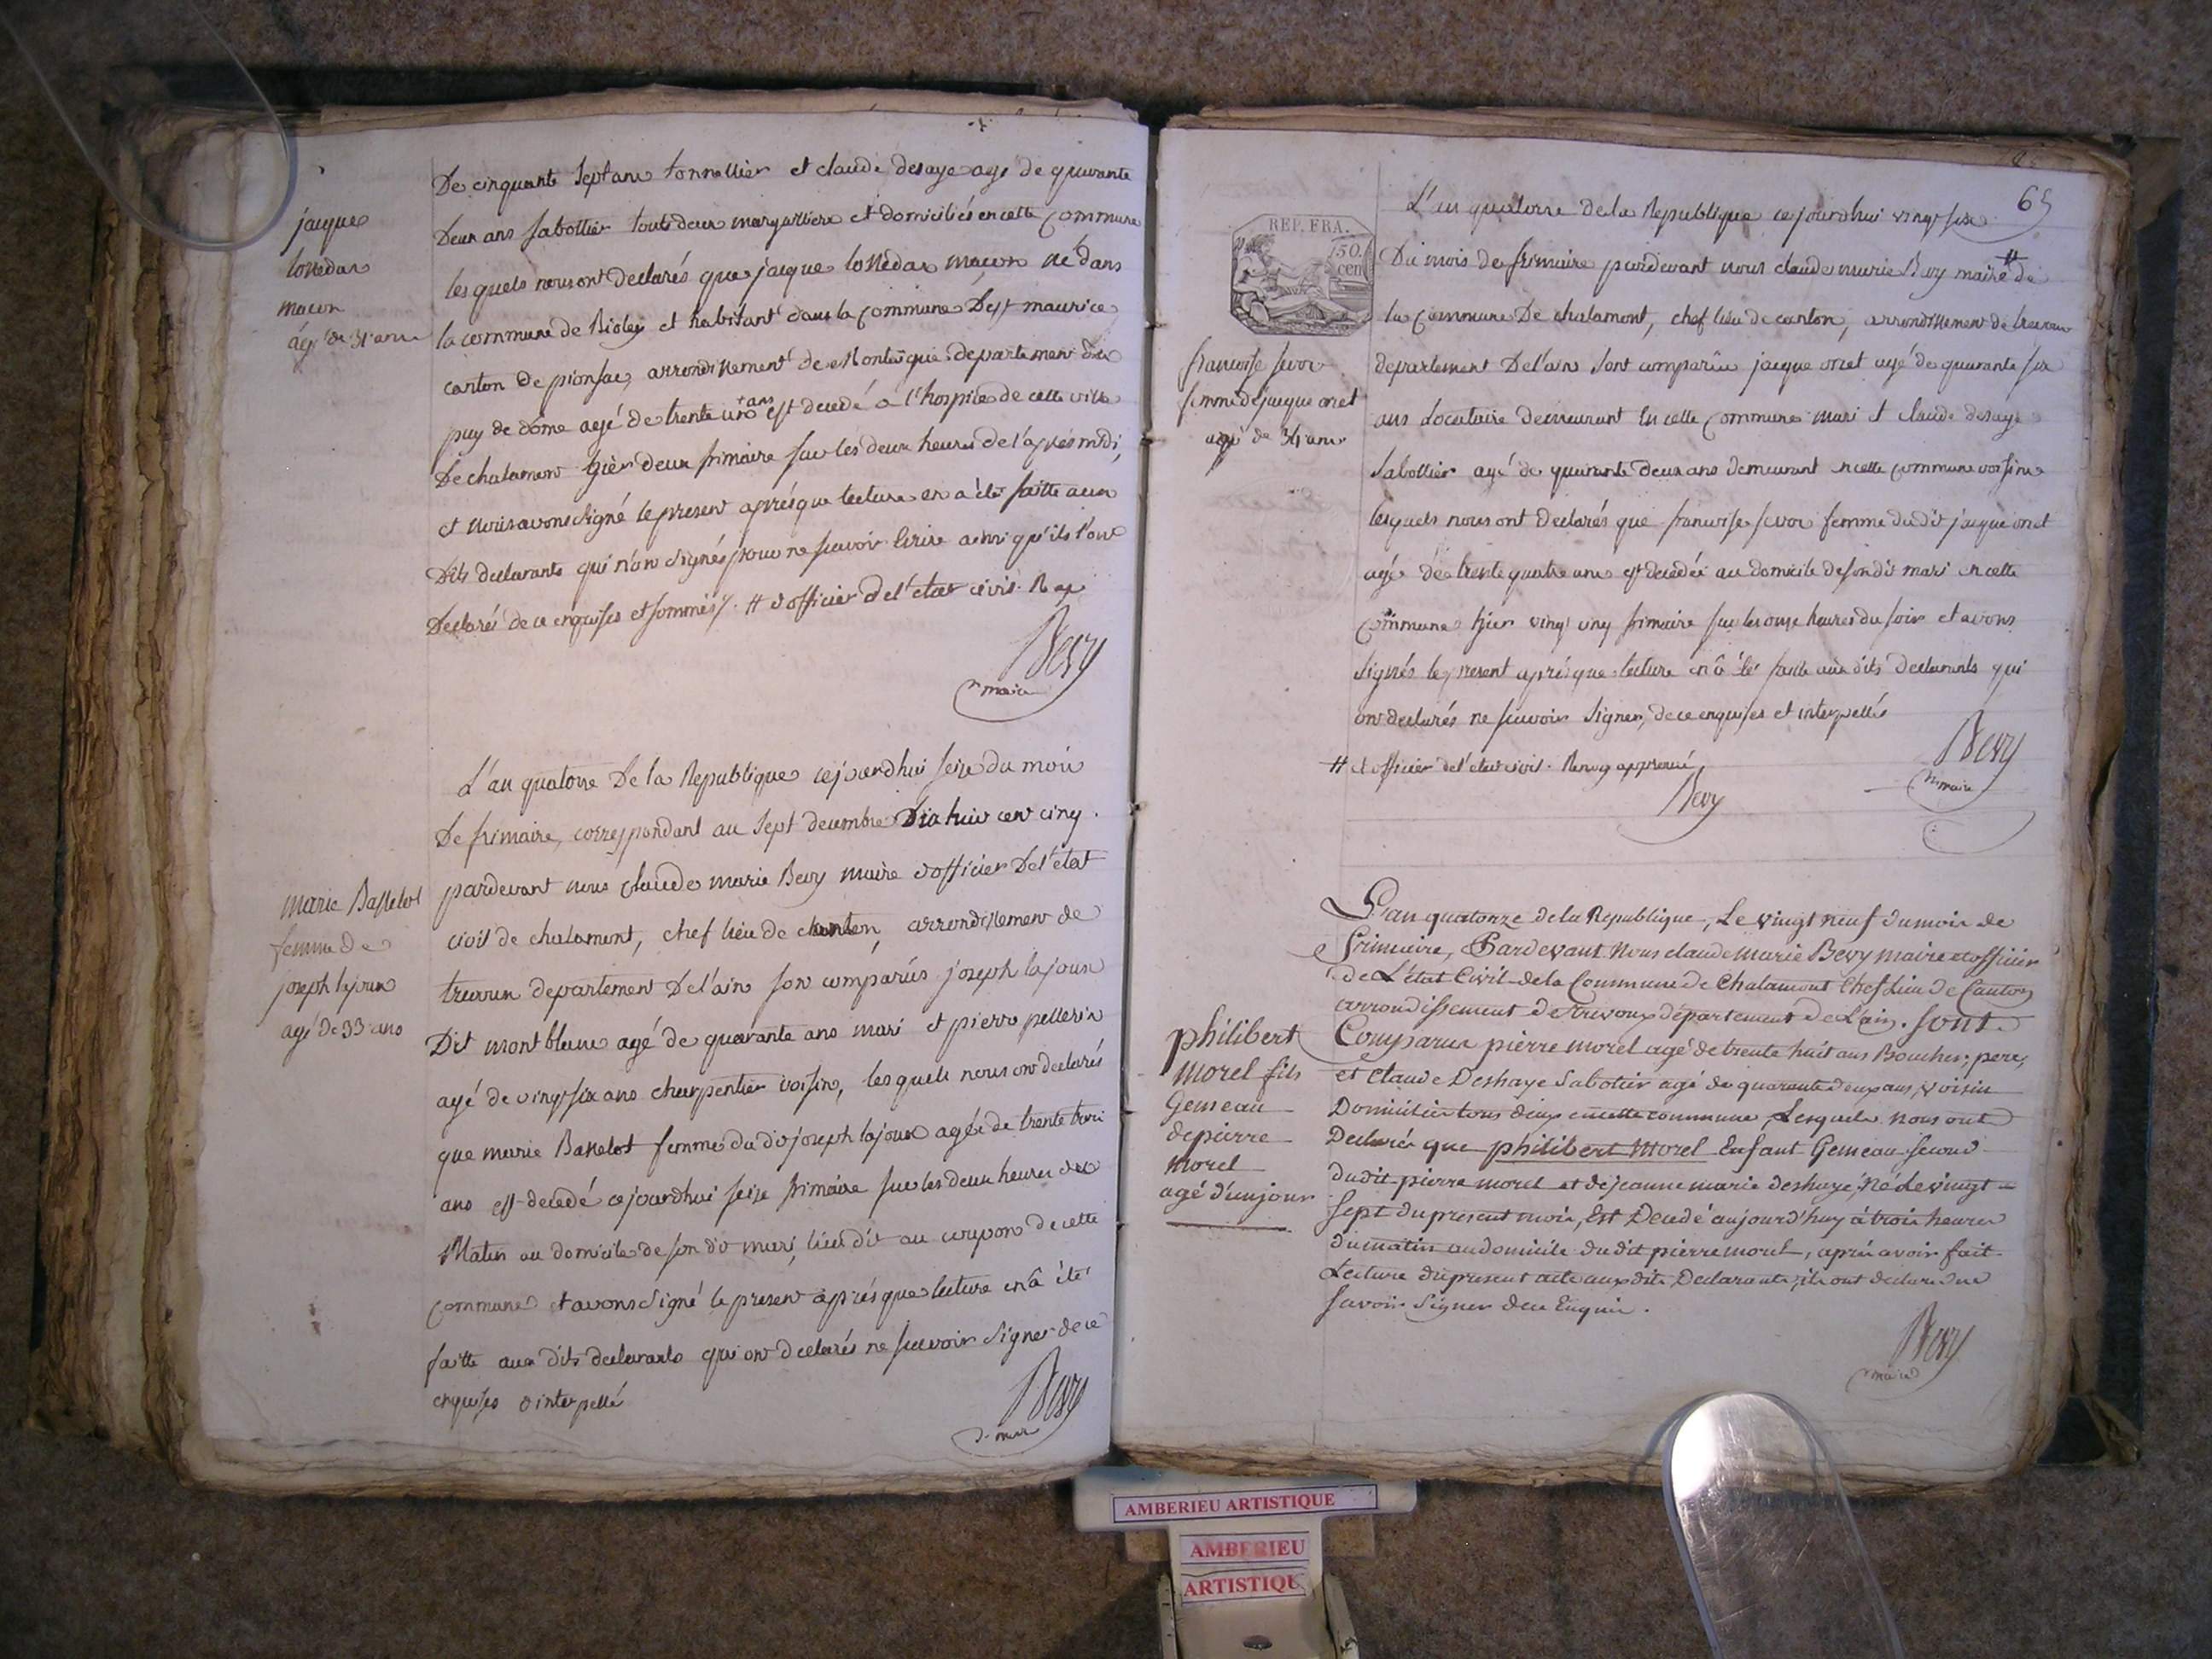 De cinquante sept ans tonnellier et claude desaye agé de quarante
Deux ans Sabottier touts deux marguilliers et domiciliés en cette commune
les quels nous ont declarés que jacque
macon né dans
la commune de et habitant dans la commune De st maurice
canton de pionsac, arrondissement de departement du
puy de dôme agé de trente un ans est decedé a l'hospice de cette ville
De chalamont hier deux frimaire sur les deux heures de l'après midi,
et nous avons signé le present après que lecture en a été faitte aux
Dits declarants qui n'ont signés pour ne scavoir Ecrire ainsi qu'ils l'ont
Declarés de ce enquises et sommés. # et officier de l'etat civil. R ap
Bevy
maire
jacque
macon
âgé de 31 ans
L'an quatorze De la Republique cejourdhui seize du mois
De frimaire, correspondant au sept decembre Dix huit cent cinq.
pardevant nous claude marie Bevy maire et officier De l'etat
civil de chalamont, chef lieu de canton, arrondissement de
trevoux departement De l'ain sont comparûs joseph lajoux
Dit mont blanc agé de quarante ans mari et pierre pellerin
agé de vingt six ans charpentier voisin, les quels nous ont declarés
que marie Basselot femme du dit joseph lajoux agée de trente trois
ans est decedé cejourdhui seize frimaire sur les deux heures du
Matin au domicile de son dit mari, lieu dit au de cette
commune et avons signé le present après que lecture en â été
faitte aux dits declarants qui ont declarés ne scavoir signer de ce
enquises et interpellé
Bevy
maire
marie Basselot
femme de
joseph lajoux
agé de 33 ans
65
REP. FRA.
50.
cen
L'an quatorze de la Republique ce jourdhui vingt six
Du mois de frimaire pardevant nous claude marie Bevy maire # de
la commune De chalamont, chef lieu de canton, arrondissement de trevoux
departement De l'ain sont comparûs jacque onet agé de quarante six
ans Locataire demeurant En cette commune mari et claude desaye
Sabottier agé de quarante deux ans demeurant en cette commune voisin
lesquels nous ont declarés que francoise femme du dit jacque onet
agé de trente quatre ans est decedée au domicile de son dit mari en cette
commune hier vingt cinq frimaire sur les onze heures du soir et avons
signés le present après que lecture en â été faitte aux dits declarants qui
ont declarés ne scavoir signer, de ce enquises et interpellés
Bevy
maire
# et officier de l'etat civil. Renvoy approuvé
Bevy
francoise
femme de jacque onet
agé de 34 ans
L'an quatorze de la Republique, Le vingt neuf du mois de
frimaire, Pardevant Nous claude Marie Bevy maire et officier
de L'état Civil de la Commune de Chalamont Chef Lieu de Canton
arrondissement de trévoux département de L'ain. sont
Comparus pierre morel agé de trente huit ans Boucher, pere,
et Claude Deshaye Sabotier agé de quarante deux ans, voisin
Domiciliés tous deux en cette commune, Lesquels nous ont
Declaré que philibert Morel Enfant Gemeau second
dudit pierre morel et de jeanne marie deshaye, Né Le vingt
sept du present mois, Est Decedé aujourd'huy à trois heures
du matin au domicile du dit pierre morel, après avoir fait
Lecture du present acte aux dits Declarants, ils ont declaré ne
savoir signer de ce Enquis.
Bevy
maire
philibert
Morel fils
Gemeau
de pierre
Morel
agé d'un jour
AMBERIEU ARTISTIQUE
AMBERIEU
ARTISTIQUE